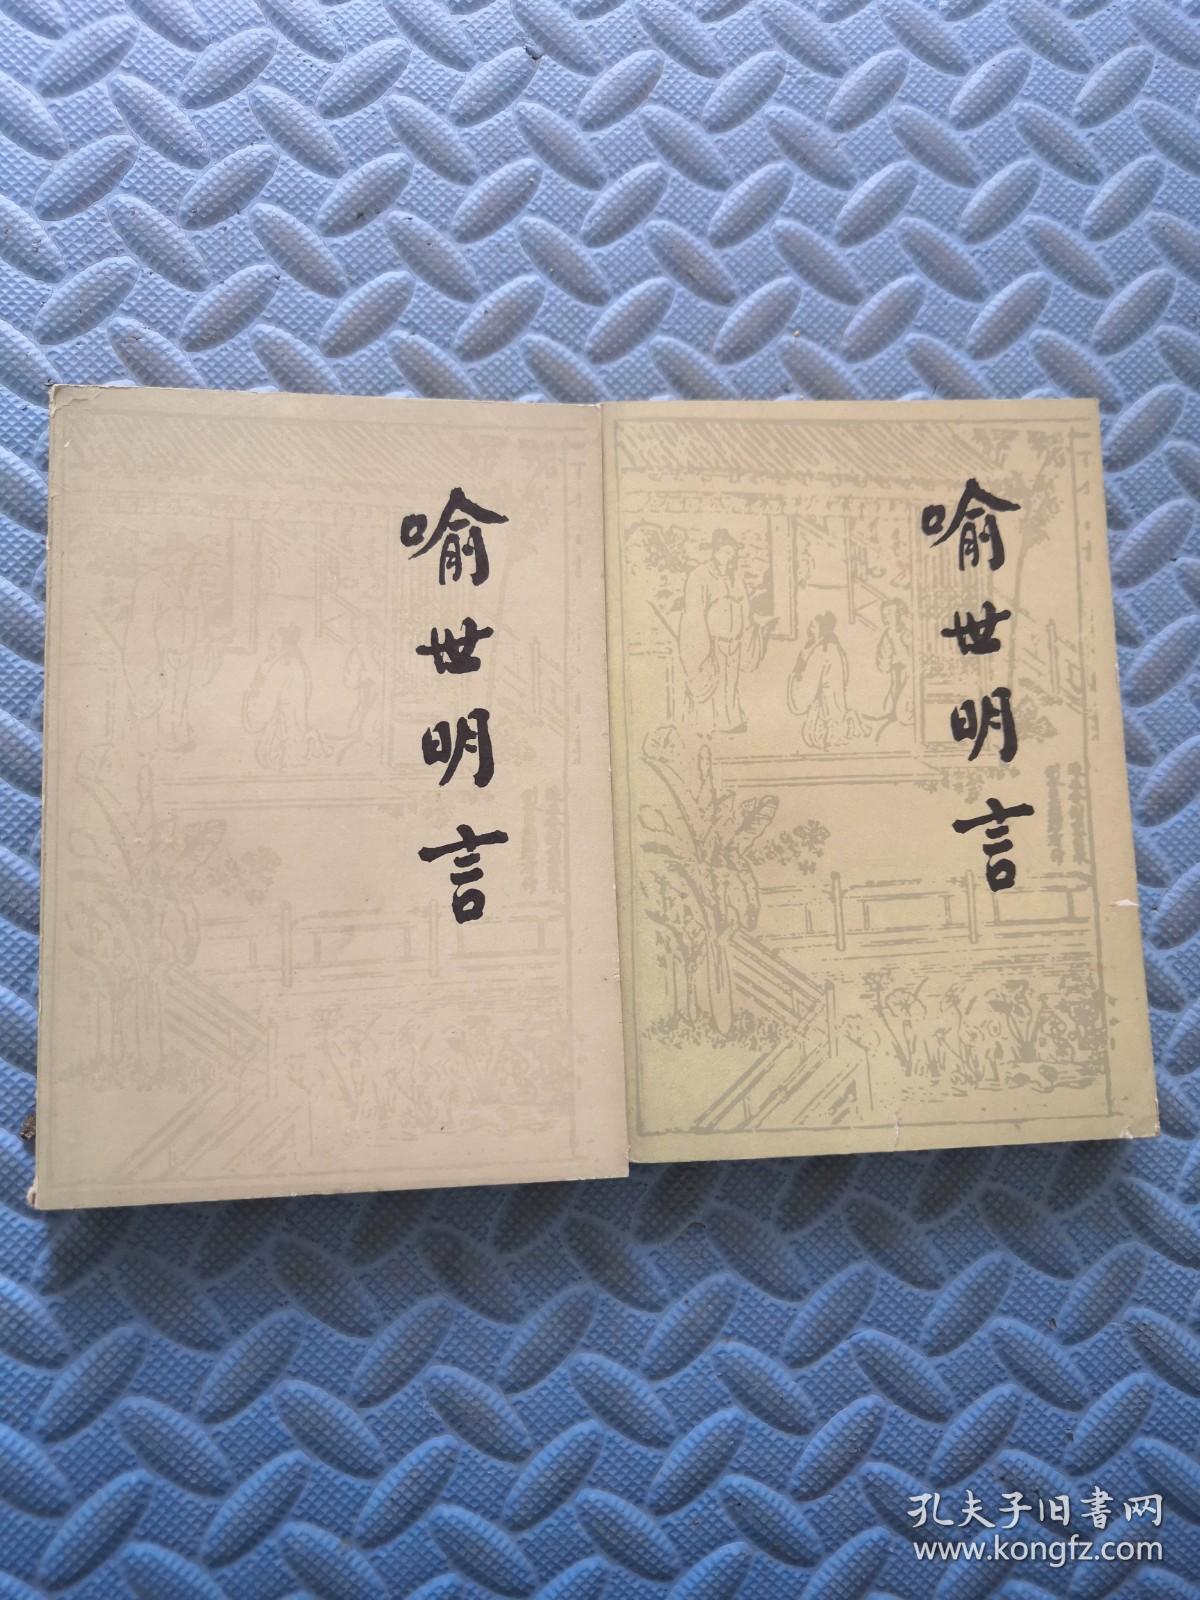 喻世明言
喻世明言
孔夫子旧書网
www.kongfz.com